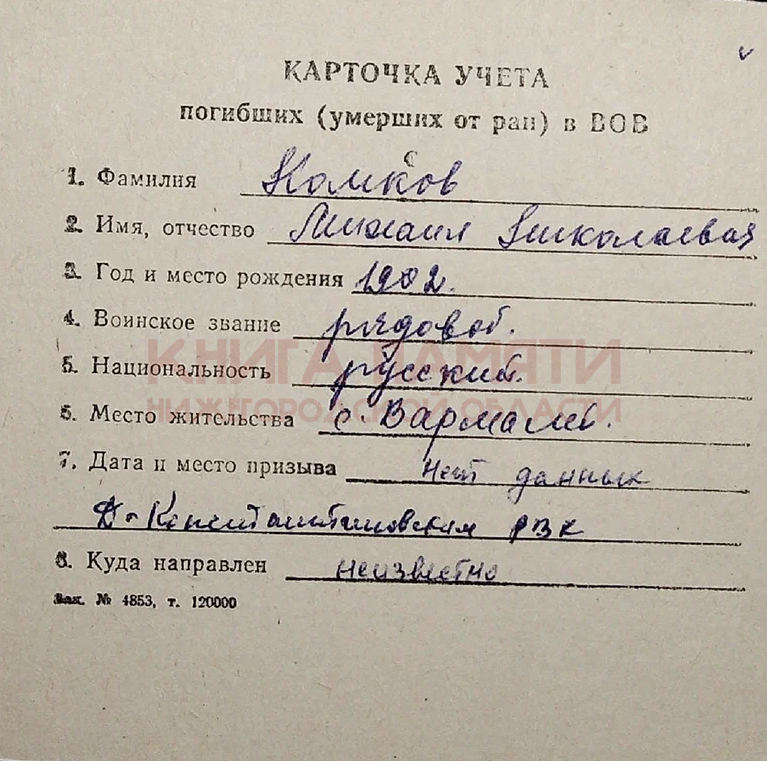 КАРТОЧКА УЧЕТА
погибших (умерших от ран) в ВОВ
1. Фамилия Комков
2. Имя, отчество Михаил Николаевич
3. Год и место рождения 1902.
4. Воинское звание рядовой.
КНИГА ПАМЯТИ
5. Национальность русский.
НИЖЕГОРОДСКОЙ ОБЛАСТИ
6. Место жительства с. Вармалей.
7. Дата и место призыва нет данных
Д-Константиновским РВК
8. Куда направлен неизвестно
Зак. № 4853, т. 120000